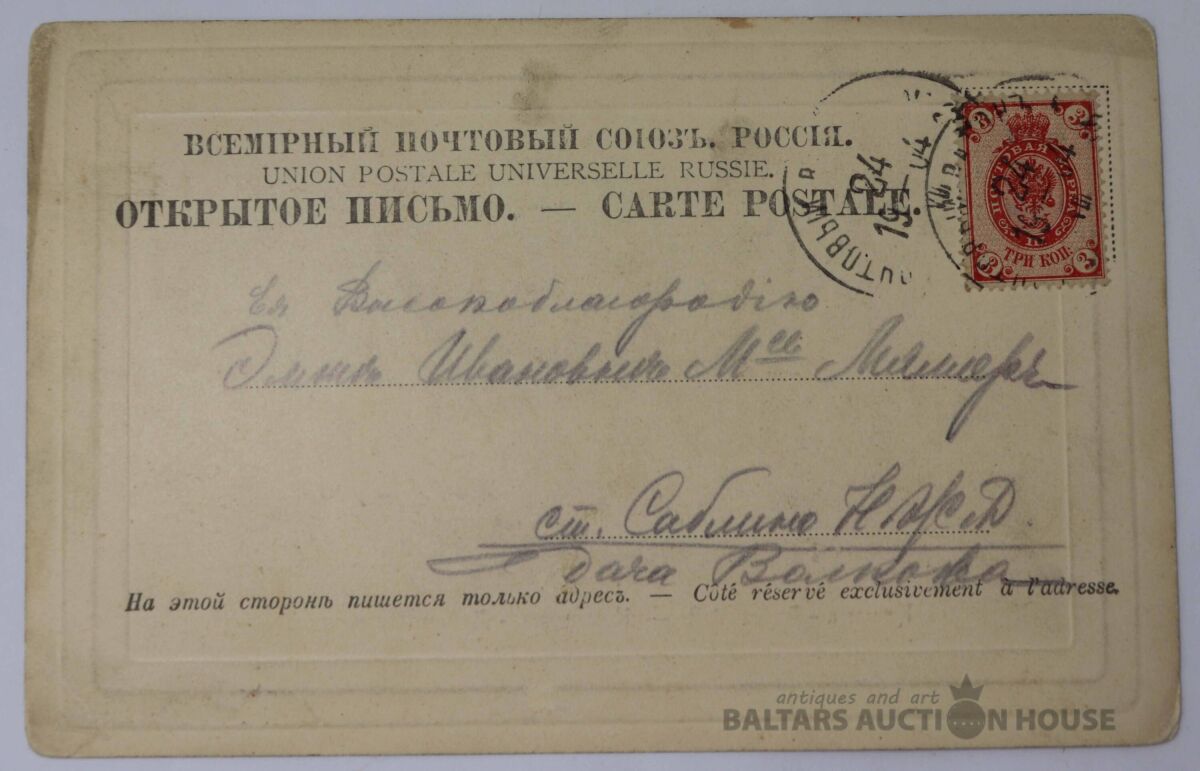 ВСЕМІРНЫЙ ПОЧТОВЫЙ СОЮЗЪ. РОССІЯ.
UNION POSTALE UNIVERSELLE RUSSIE.
ОТКРЫТОЕ ПИСЬМО. — CARTE POSTALE.
3 3
ПОЧТОВАЯ МАРКА
ТРИ КОП.
3 3
24
19 04
Ея Высокоблагородію
Ивановнѣ
ст. Саблино Н Ж Д
дача Волкова
На этой сторонѣ пишется только адресъ. — Côté réservé exclusivement à l'adresse.
antiques and art
BALTARS AUCTION HOUSE